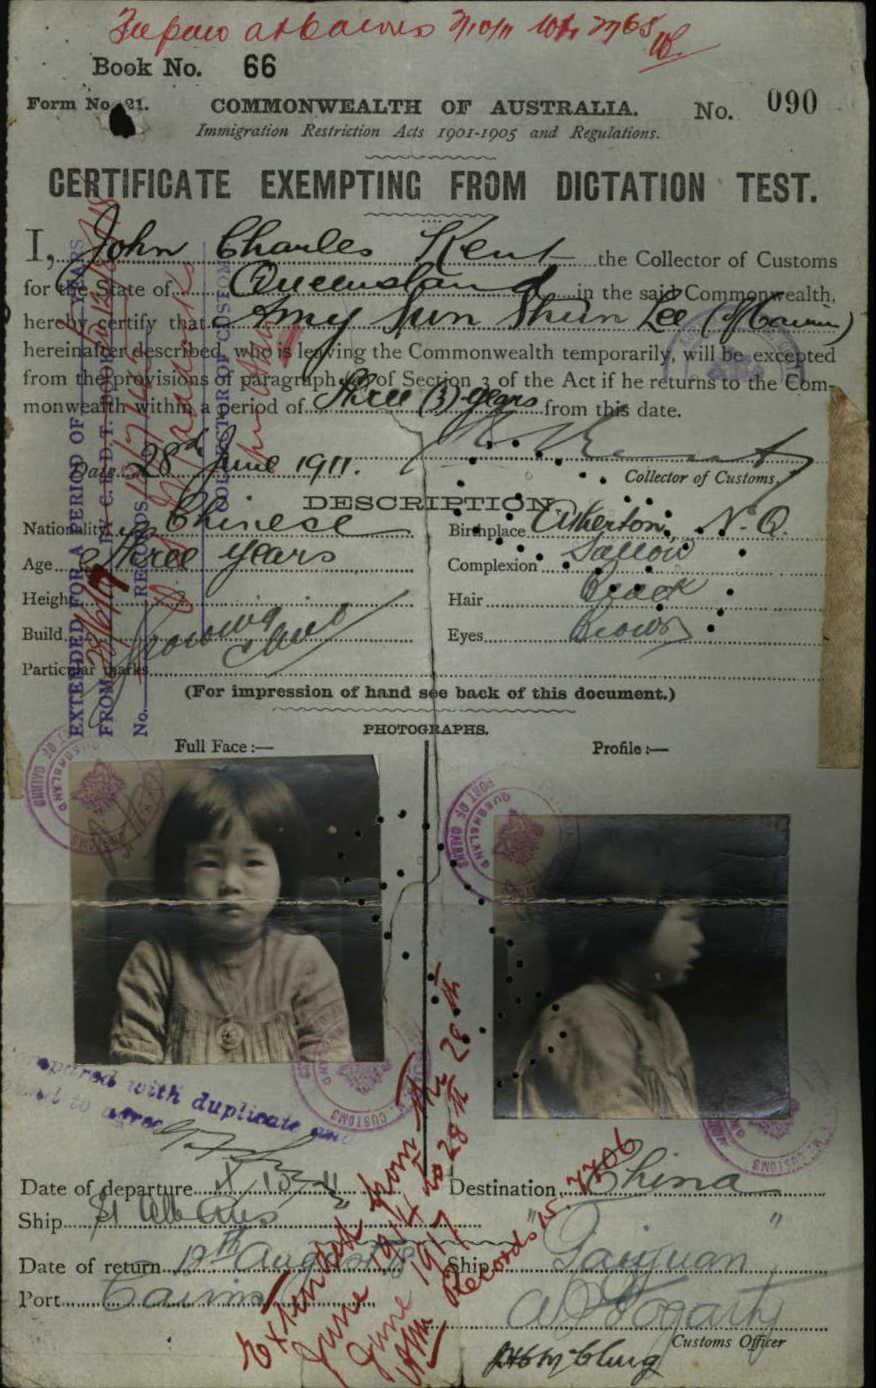 Book No. 66
Form No. 21. COMMONWEALTH OF AUSTRALIA. No. 090
Immigration Restriction Acts 1901-1905 and Regulations.
CERTIFICATE EXEMPTING FROM DICTATION TEST.
I, John Charles Kent the Collector of Customs
for the State of Queensland in the said Commonwealth,
hereby certify that Amy Sun Shun Lee (of Cairns)
hereinafter described, who is leaving the Commonwealth temporarily, will be excepted
from the provisions of paragraph of Section 3 of the Act if he returns to the Com-
monwealth within a period of Three (3) years from this date.
Date 28th June 1911.
Collector of Customs.
DESCRIPTION.
Nationality Chinese Birthplace Atherton, N.Q.
Age Three years Complexion Sallow
Height Hair Black
Build Eyes Brown
Particular marks
(For impression of hand see back of this document.)
PHOTOGRAPHS.
Full Face :— Profile :—
EXTENDED FOR A PERIOD OF YEARS
FROM BY C. E. D. T.
No. RECORDS
COLLECTOR OF CUSTOMS
PORT OF CAIRNS
QUEENSLAND
CUSTOMS
with duplicate and
Extended from the 28th
June 1914 to 28th
June 1917
Records 15.7706
Date of departure Destination China
Ship St Albans "
Date of return 12th August Ship Taiyuan
Port Cairns
Customs Officer